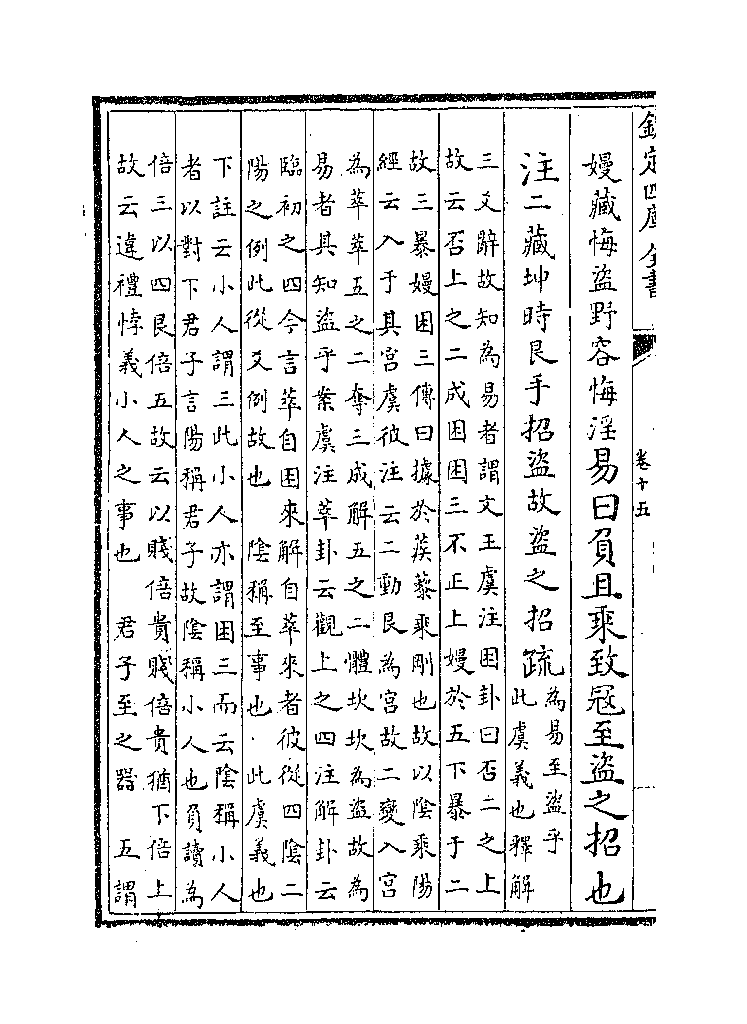 欽定四庫全書
卷十五
嫚藏悔盜野容悔淫易曰負且乘致寇至盜之招也
注二藏坤時艮手招盜故盜之招疏為易至盜乎
此虞義也釋解
三爻辭故知為易者謂文王虞注困卦曰否二之上
故云否上之二成困困三不正上嫚於五下暴于二
故三暴嫚困三傳曰據於蒺藜乘剛也故以陰乘陽
經云入于其宮虞彼注云二動艮為宮故二變入宮
為萃萃五之二奪三成解五之二體坎坎為盜故為
易者其知盜乎案虞注萃卦云觀上之四注解卦云
臨初之四今言萃自困來解自萃來者彼從四陰二
陽之例此從爻例故也　陰稱至事也　此虞義也
下註云小人謂三此小人亦謂困三而云陰稱小人
者以對下君子言陽稱君子故陰稱小人也負讀為
倍三以四艮倍五故云以賤倍貴賤倍貴猶下倍上
故云違禮悖義小人之事也　君子至之器　五謂